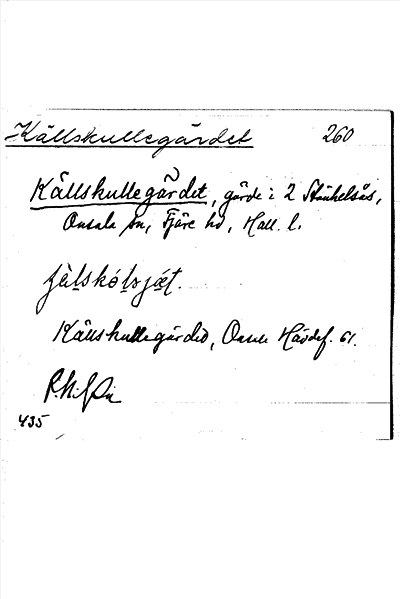 Källskullegärdet 260
Källskullegärdet, gärde i 2 Stänkelsås,
Onsala sn, Fjäre hd, Hall. l.
Källskullegärded, Onsala Hävdef. 61.
435